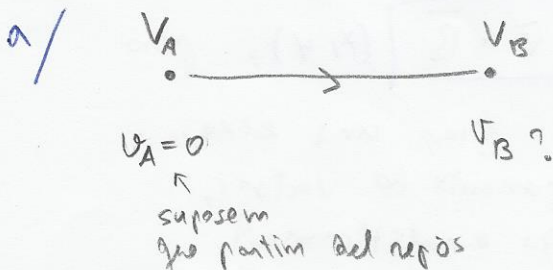 a/
V_A V_B
v_A = 0 v_B ?
↑
suposem
que partim del repòs